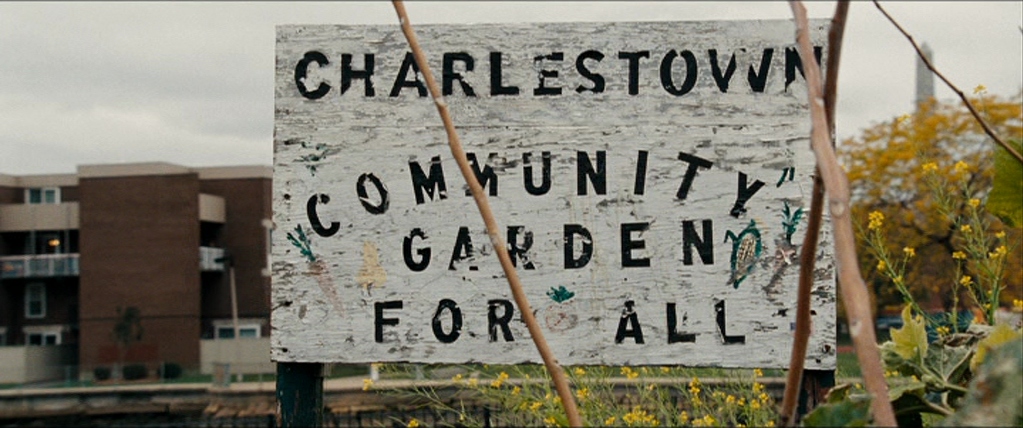 CHARLESTOWN
COMMUNITY
GARDEN
FOR ALL